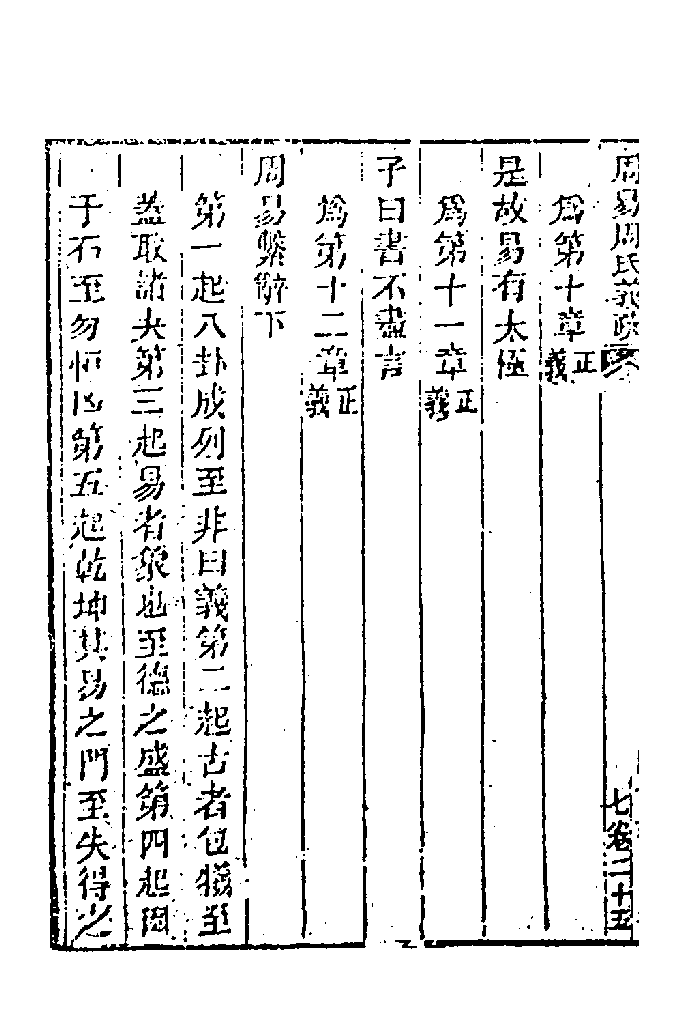 周易周氏義疏
爲第十章正義
是故易有太極
爲第十一章正義
子曰書不盡言
爲第十二章正義
周易繫辭下
第一起八卦成列至非曰義第二起古者包犧至
蓋取諸夬第三起易者象也至德之盛第四起困
于石至勿恒凶第五起乾坤其易之門至失得之
七卷二十五